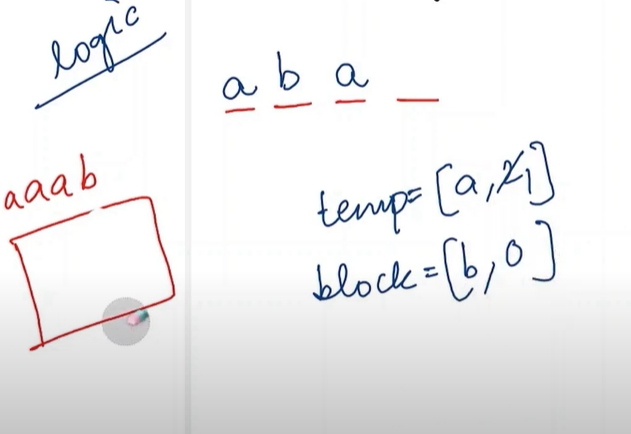 logic
a b a _
aaab
temp=[a,2̶1]
block=[b,0]